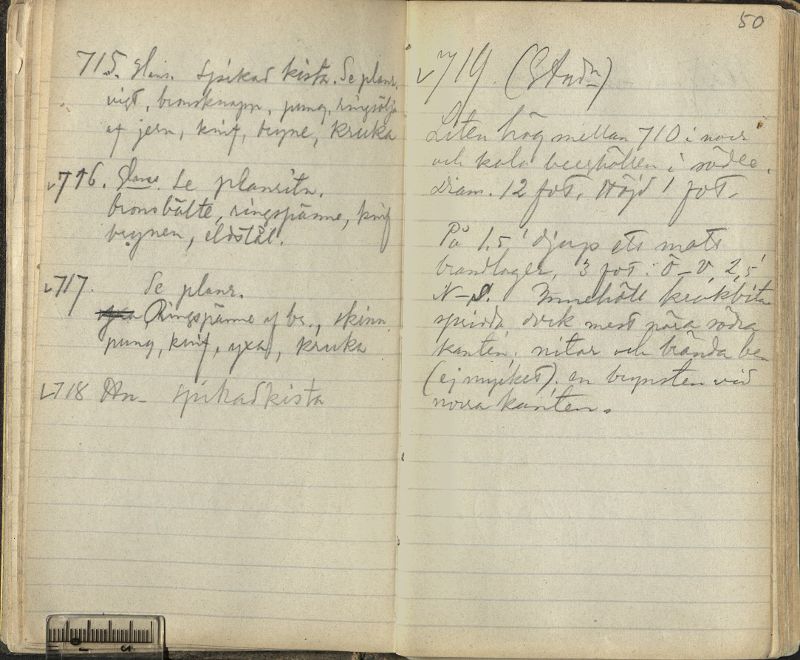 715. Hans. spikad kista. Se planr.
vigt, bronsknapp, pung, ringsölja
af jern, knif, bryne, kruka
716. Hans. Se planritn.
bronsbälte, ringspänne, knif
brynen, eldstål.
717. Se planr.
Ringspänne af br., skinn
pung, knif, yxa, kruka
718 An- spikadkista
50
719. (Stadn)
Liten hög mellan 710 i norr
och kala berghällen i söder.
Diam. 12 fot. Höjd 1 fot.
På 1.5' djup ets mats
brandlager, 3 fot i Ö-V 2,5'
N-S. Innehöll krukbitar
spridda, dock mest nära södra
kanten, nitar och brända ben
(ej mycket). en brynsten vid
norra kanten.